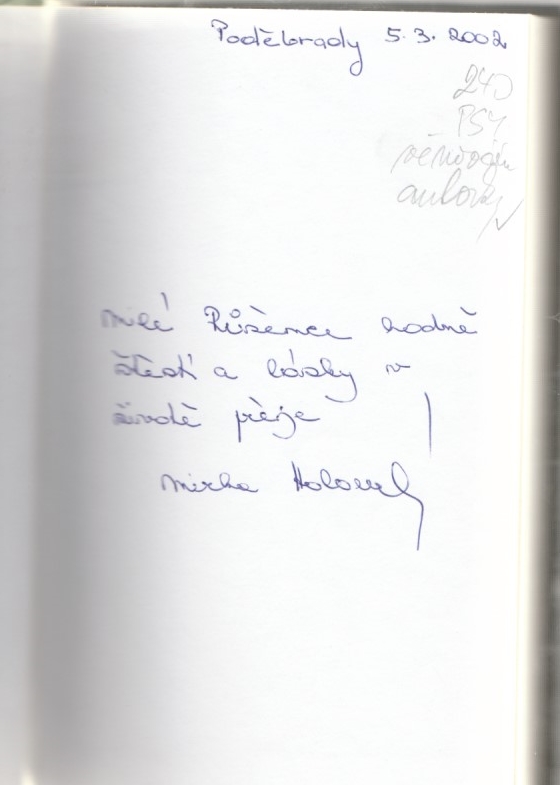 Poděbrady 5.3.2002
240
PSY
věnování
autorky
milé Růžence hodně
štěstí a lásky v
životě přeje
Mirka